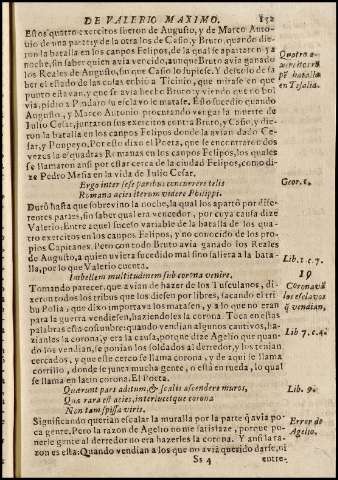 DE VALERIO MAXIMO.
Estos quatro exercitos fueron de Augusto, y de Marco Antonio de vna parte: y de la otra los de Casio, y Bruto, quando dieron la batalla en los canpos Felipos, de la qual se apartaron ya
noche, sin saber quien avia vencido, aunque Bruto avia ganado
los Reales de Augusto, sin que Casio lo supiese. Y deseoso de saber el estado de las cosas enbio a Ticinio, que mirase en que
punto estavan, y que se avia hecho Bruto: y viendo que no bolvia, pidio a Pindaro su esclavo le matase. Esto sucedio quando
Augusto, y Marco Antonio procurando vengar la muerte de
Julio Cesar, juntaron sus exercitos contra Bruto, y Casio, y dieron la batalla en los canpos Felipos donde la avian dado Cesar, y Ponpeyo. Por esto dixo el Poeta, que se encontraron dos
vezes las esquadras Romanas en los canpos Felipos, los quales
se llamaron ansi por estar cerca de la ciudad Felipos, como dize Pedro Mesia en la vida de Julio Cesar.
Ergo inter sese paribus concurrere telis
Romana acies iterum videre Philippi.
Duró hasta que sobrevino la noche, la qual los apartó por diferentes partes, sin saber qual era vencedor, por cuya causa dize
Valerio: Entre aquel suceso variable de la batalla de los quatro exercitos en los canpos Felipos, y no conocido de los propios Capitanes. Pero con todo Bruto avia ganado los Reales
de Augusto, a quien uviera sucedido mal sino saliera a la batalla, por lo que Valerio cuenta.
Imbellem multitudinem sub corona venire.
Tomando parecer, que avian de hazer de los Tusculanos, dixeron todos los tribus que los diesen por libres, sacando el tribu Polia, que dixo importava los matasen, y a los que no eran
para la guerra vendiesen, haziendoles la corona. Toca en estas
palabras esta costunbre: quando vendian algunos cautivos, hazianles la corona, y era la causa, porque dize Agelio que quando los vendian, se ponian los soldados al derredor, y los tenian
cercados, y que este cerco se llama corona, y de aqui se llama
corrillo, donde se junta mucha gente, o està en rueda, lo qual
se llama en latin corona. El Poeta.
Quærunt pars aditum, & scalis ascendere muros,
Qua rara est acies, interlucetque corona
Non tam spissa viris.
Significando querian escalar la muralla por la parte q̃ avia poca gente. Pero la razon de Agelio no me satisfaze, porque ponerle gente al derredor no era hazerles la corona. Y ansi la razon es esta: Quando vendian a los que no avia querido darse, ni
Ss 4
entre-
en Tesalia.
Geor. 1.
Lib. 1. c. 7.
19
Coronavã
los esclavos
q̃ vendian.
Lib. 7. c. 4.
Lib. 9.
Error de
Agelio.